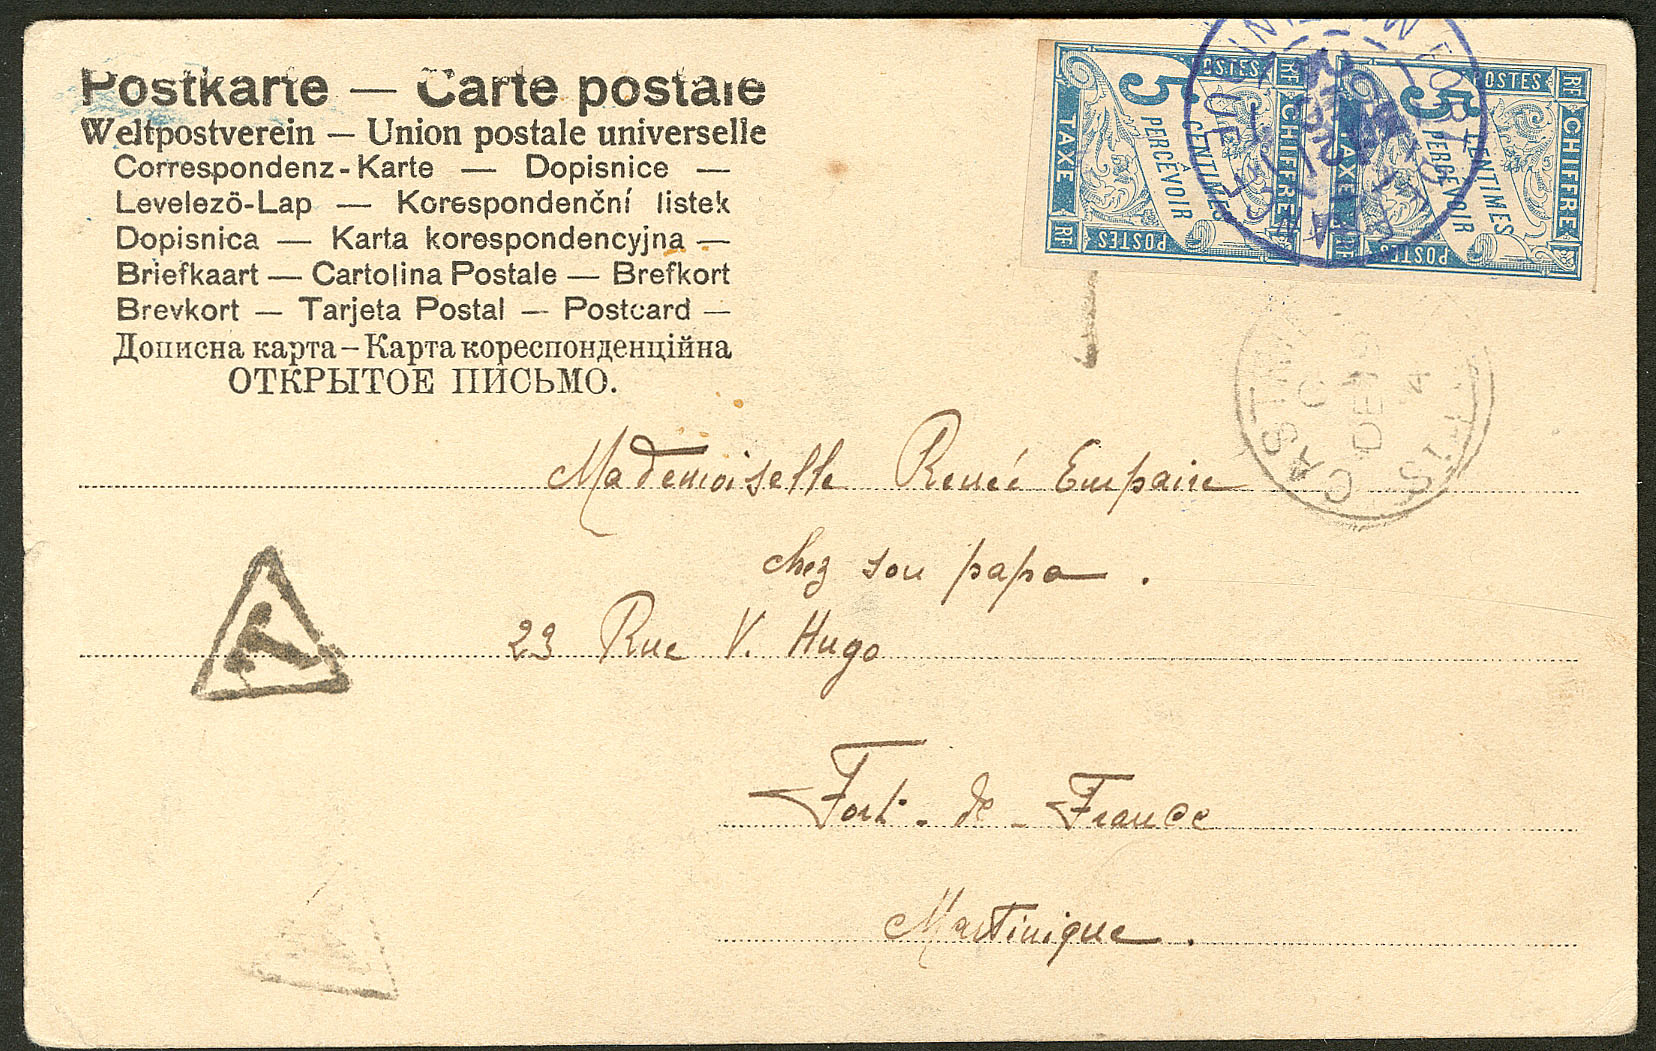 Postkarte — Carte postale
Weltpostverein — Union postale universelle
Correspondenz-Karte — Dopisnice —
Levelező-Lap — Korespondenční listek
Dopisnica — Karta korespondencyjna —
Briefkaart — Cartolina Postale — Brefkort
Brevkort — Tarjeta Postal — Postcard —
Дописна карта — Карта кореспонденційна
ОТКРЫТОЕ ПИСЬМО.
POSTES RF CHIFFRE
5 CENTIMES
PERCEVOIR
TAXE
RF POSTES
POSTES RF CHIFFRE
5 CENTIMES
PERCEVOIR
TAXE
POSTES
CASTRIES
C
DE
4
ST
T
Mademoiselle Renée Empaire
chez son papa.
23 Rue V. Hugo
Fort-de-France
Martinique.